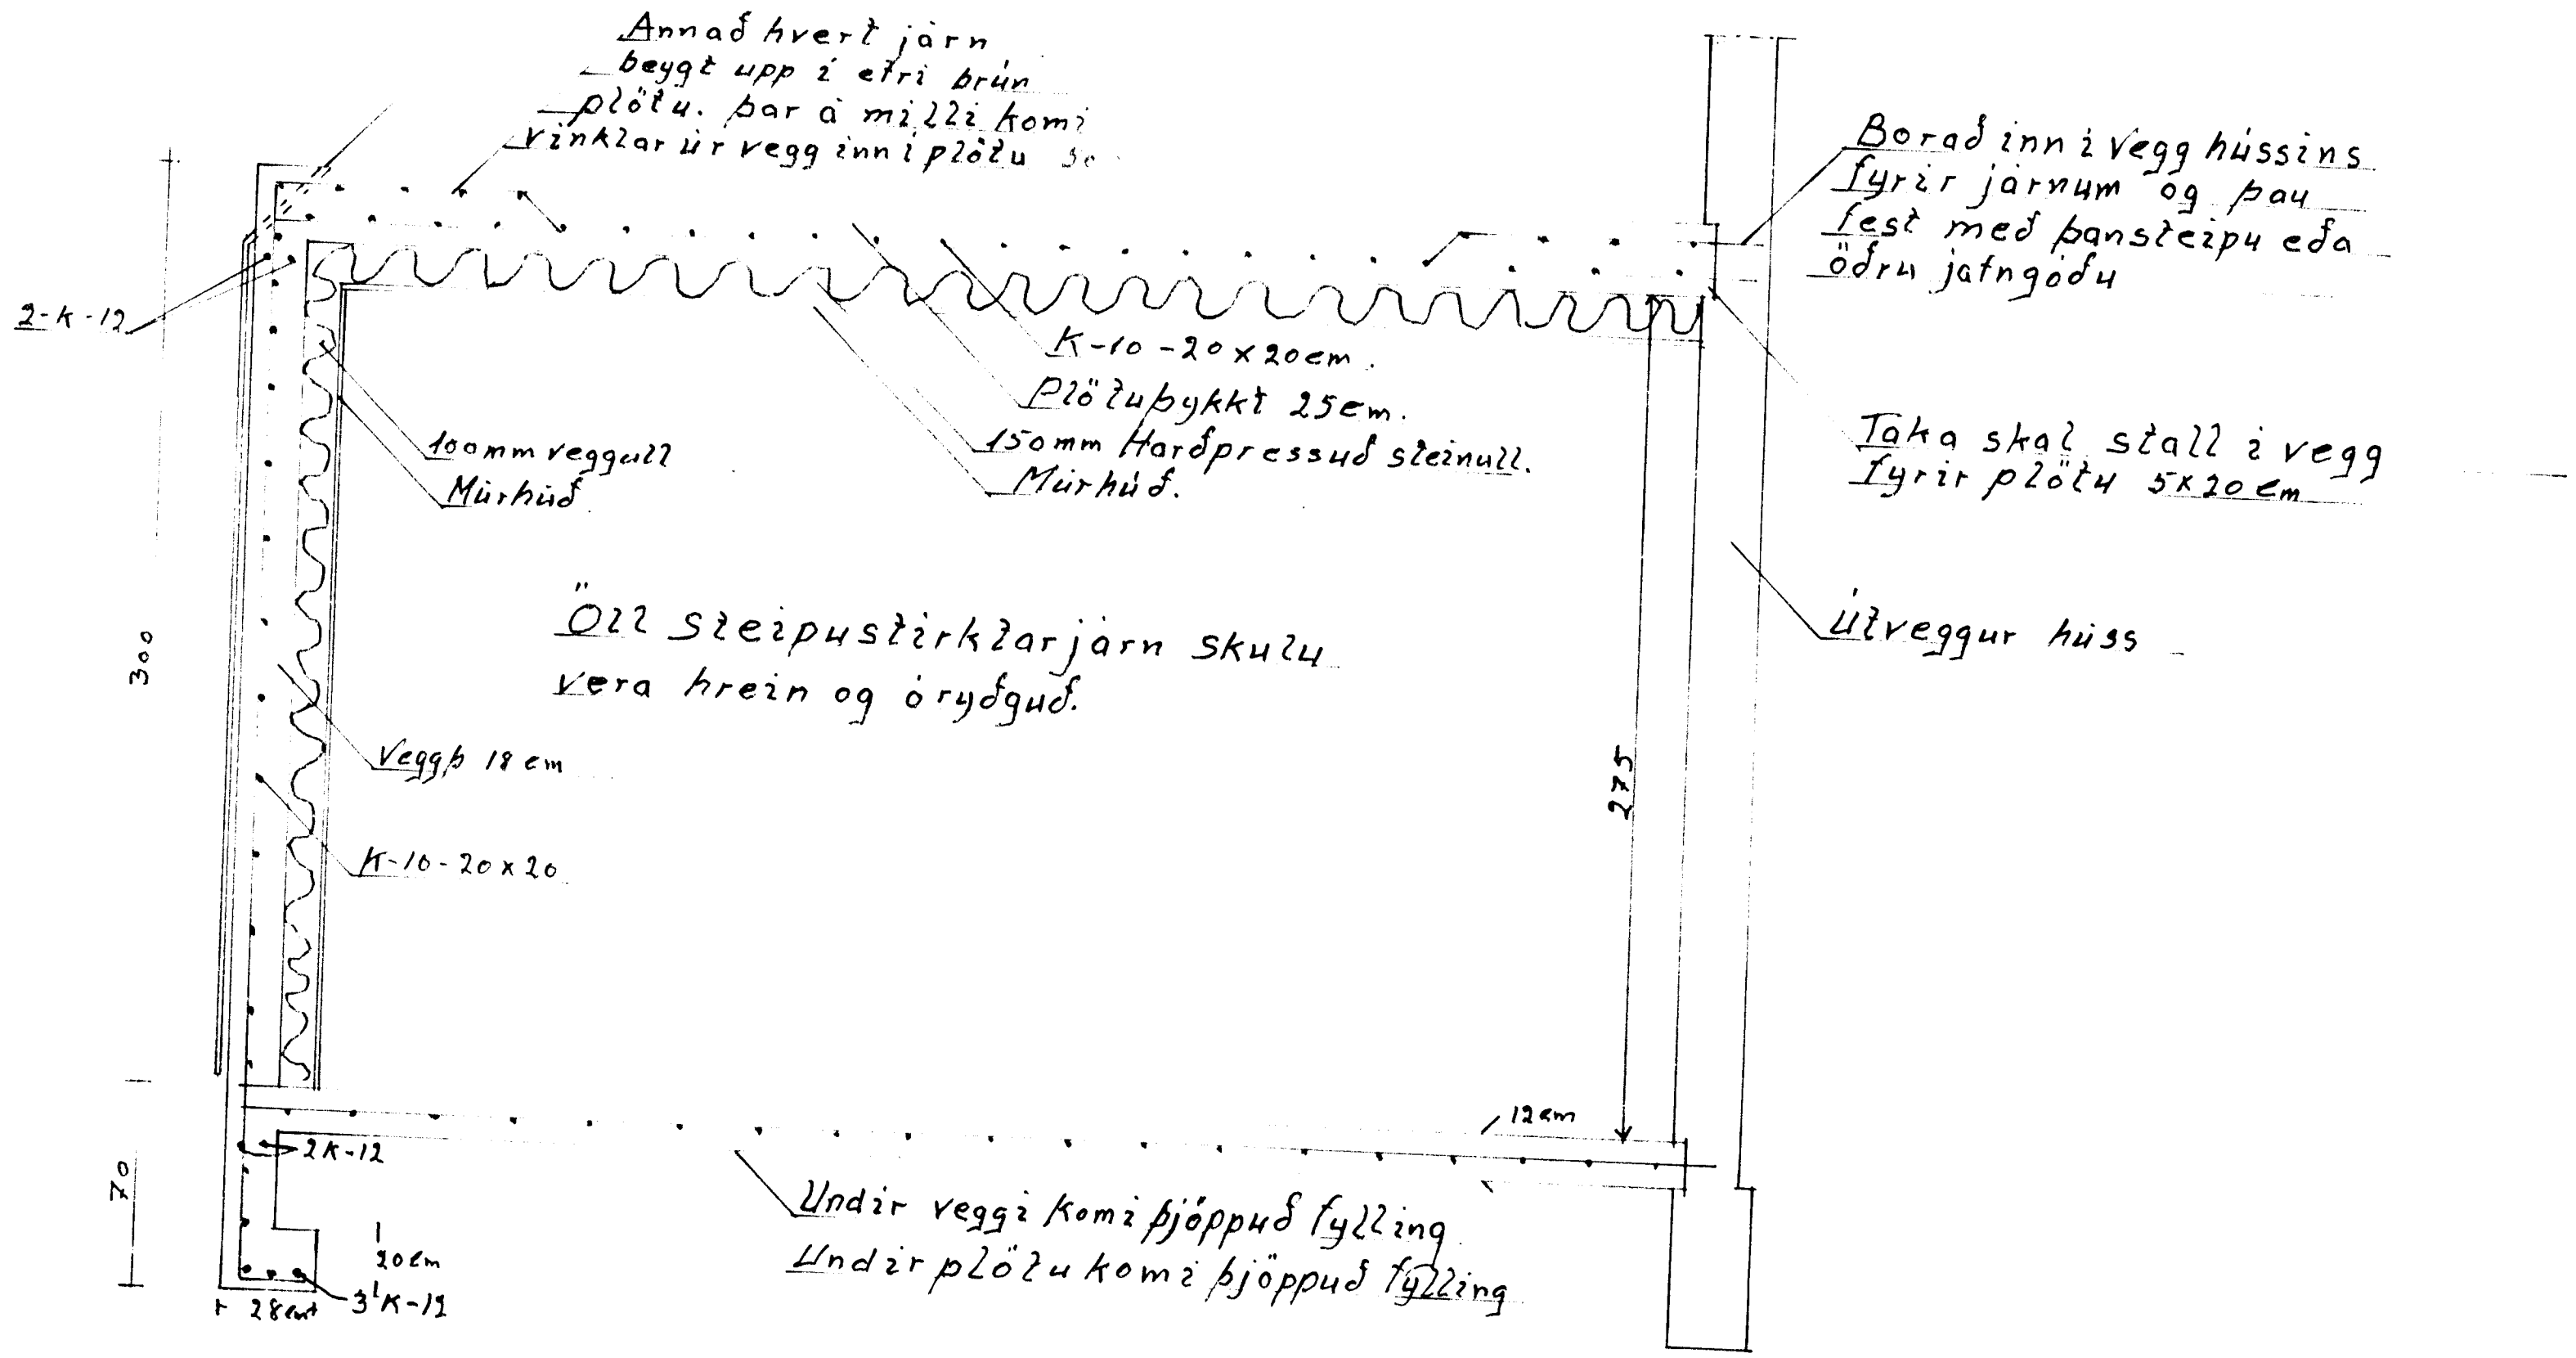 Annað hvert járn
beygt upp í efri brún
plötu. þar á milli komi
vinklar úr vegg inn í plötu
Borað inn í vegg hússins
fyrir járnum og þau
fest með þansteipu eða
öðru jafngóðu
2-K-12
K-10-20x20cm.
Plötuþykkt 25cm.
150mm Harðpressuð steinull.
Múrhúð.
100mm veggull
Múrhúð
Taka skal stall í vegg
fyrir plötu 5x20cm
300
Öll steipustirktarjárn skulu
vera hrein og óryðguð.
Útveggur húss
Veggþ 18 cm
275
K-10-20x20
12cm
2K-12
70
Undir veggi komi þjöppuð fylling
Undir plötu komi þjöppuð fylling
20cm
3K-12
28cm